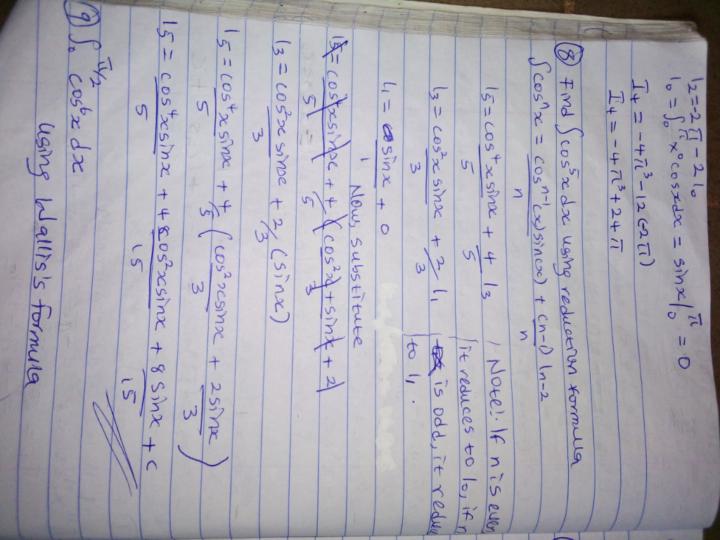 I2 = -2π - 2I0
I0 = ∫0^π x^0 cosx dx = sinx |0^π = 0
I4 = -4π^3 - 12(-2π)
I4 = -4π^3 + 24π
(8) Find ∫cos^5 x dx using reduction formula
∫cos^n x = cos^(n-1)(x) sin(x) / n + (n-1)/n I n-2
I5 = cos^4 x sinx / 5 + 4/5 I3
I3 = cos^2 x sinx / 3 + 2/3 I1
I1 = sinx / 1 + 0
Note!: If n is even,
it reduces to I0, if n
is odd, it reduces
to I1.
Now, substitute
I5 = cos^4 x sinx / 5 + 4/5 (cos^2 x / 3 + sinx + 2
I3 = cos^2 x sinx / 3 + 2/3 (sinx)
I5 = cos^4 x sinx / 5 + 4/5 (cos^2 x sinx / 3 + 2sinx / 3)
I5 = cos^4 x sinx / 5 + 4cos^2 x sinx / 15 + 8 sinx / 15 + c
(9) ∫0^π/2 cos^6 x dx
using Wallis's formula